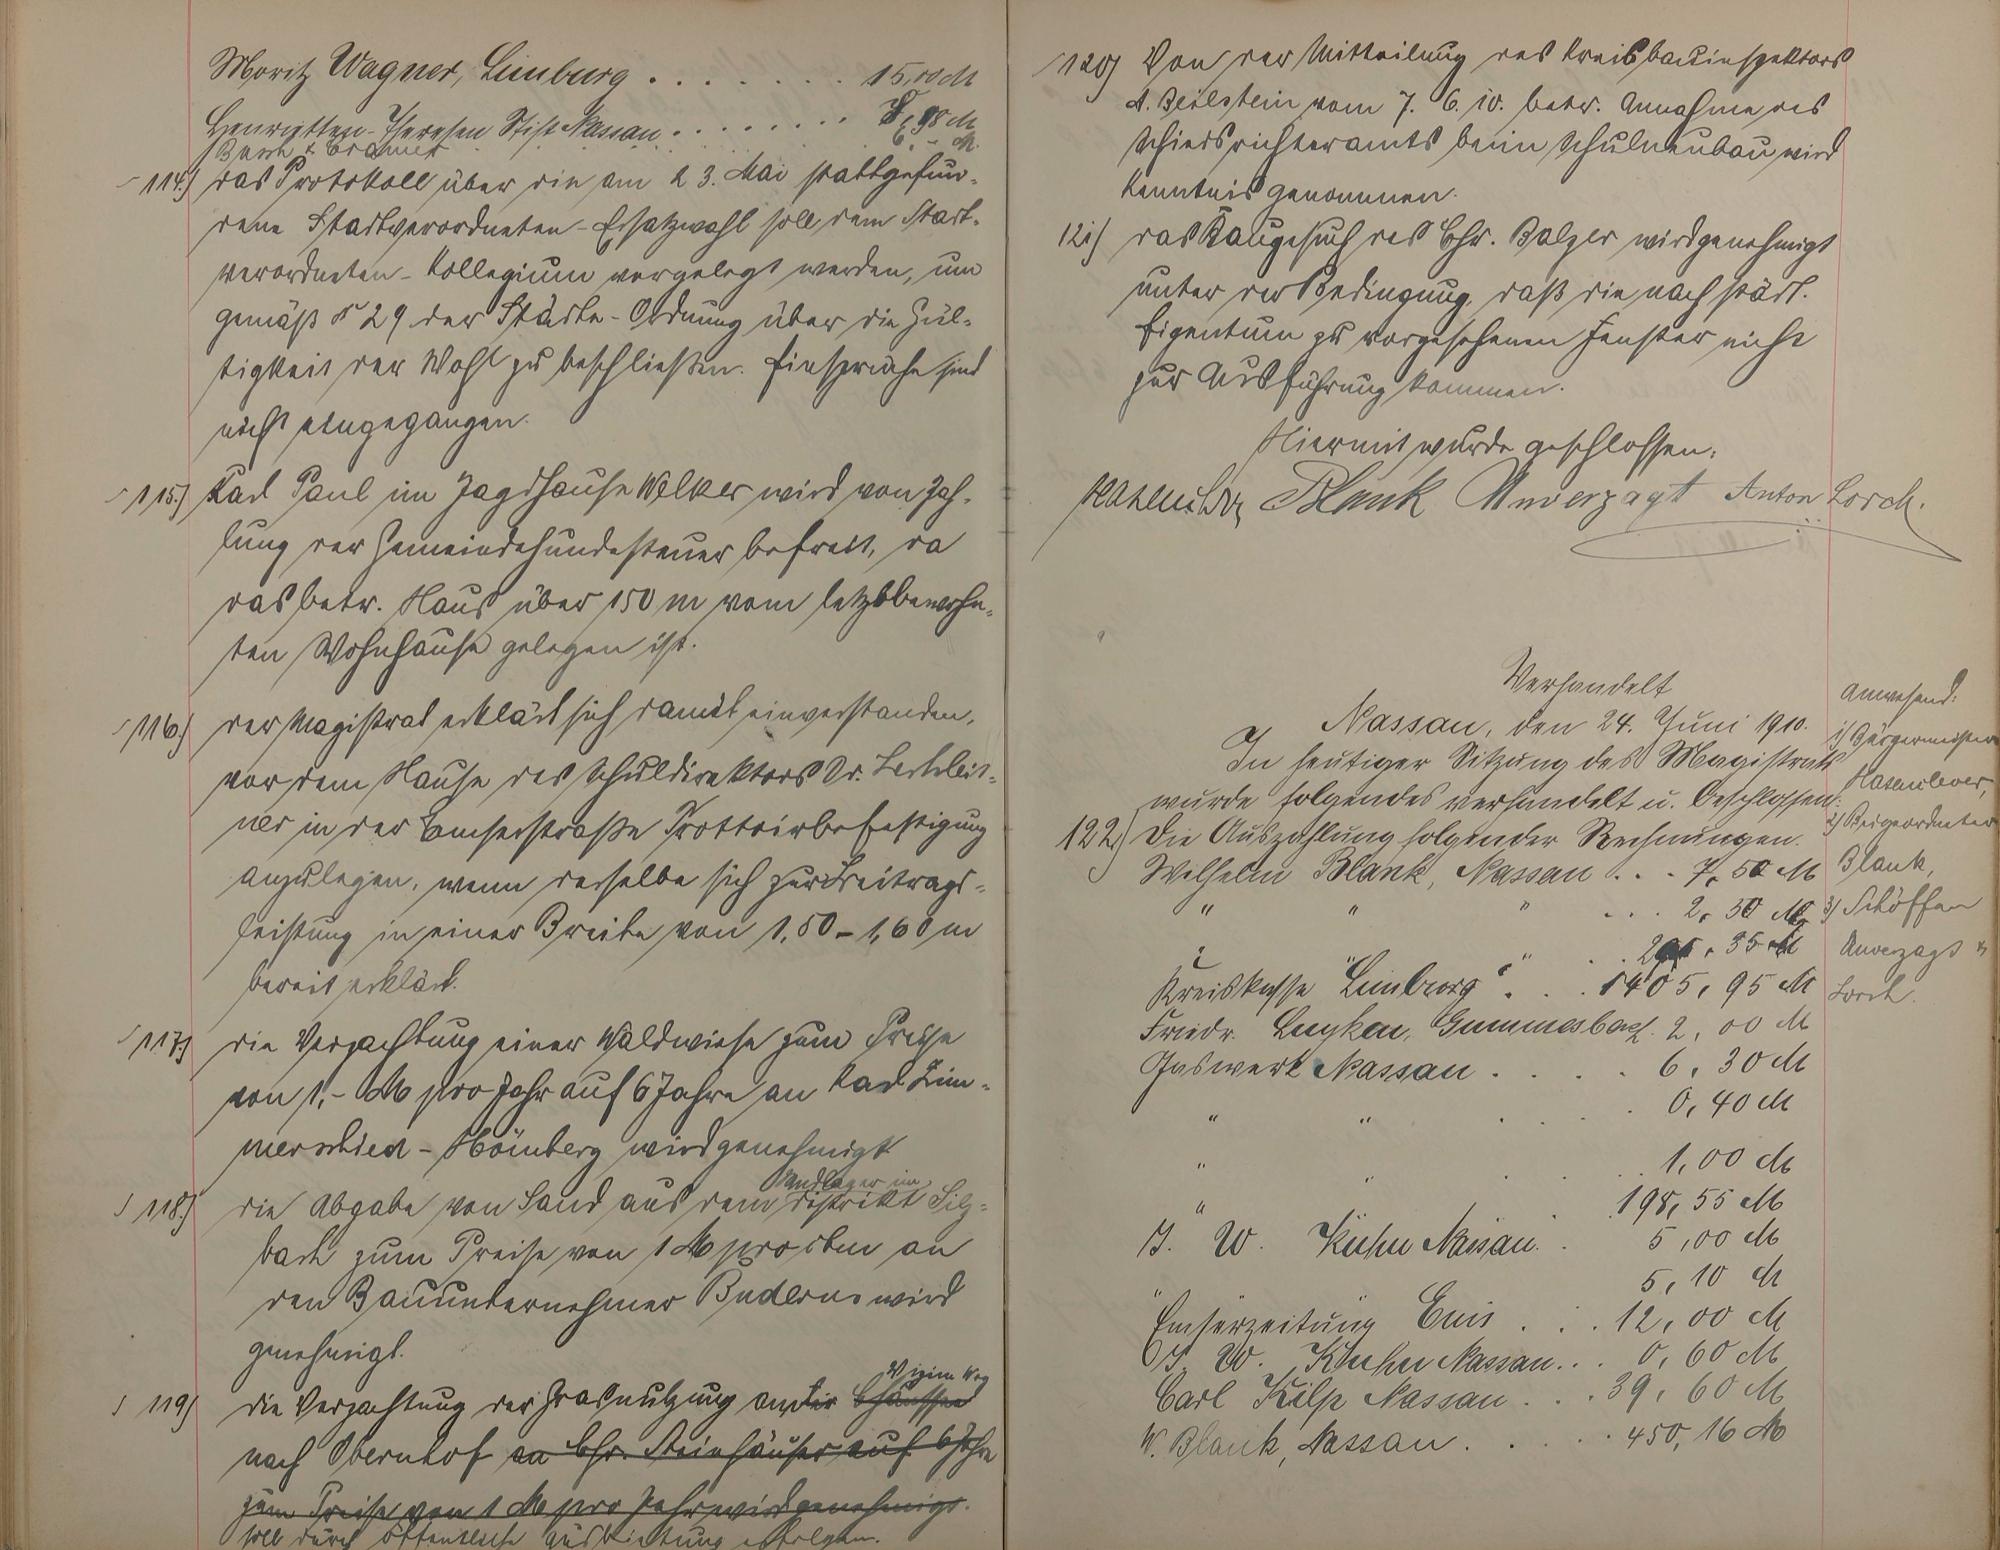 Moritz Wagner, Limburg . . . . . . . 15,00 M
Henrietten-Theresen Stift Nassau . . . . . . . . 98 M
Busch & Cramer 6,- M.
114.) das Protokoll über die am 23. Mai stattgefun-
dene Stadtverordneten-Ersatzwahl soll dem Stadt-
verordneten-Kollegium vorgelegt werden, um
gemäß § 29 der Städte-Ordnung über die Gül-
tigkeit der Wahl zu beschließen. Einsprüche sind
nicht eingegangen.
115.) Karl Paul im Jagdhause Welker wird von Zah-
lung der Gemeindehundesteuer befreit, da
das betr. Haus über 150 m vom letztbewohn-
ten Wohnhause gelegen ist.
116.) der Magistrat erklärt sich damit einverstanden,
vor dem Hause des Schuldirektors Dr. Lechleit-
ner in der Emserstraße Trottoirbefestigung
anzulegen, wenn derselbe sich zur Beitrags-
leistung in einer Breite von 1,50 - 1,60 m
bereit erklärt.
117.) die Verpachtung einer Waldwiese zum Preise
von 1,- M pro Jahr auf 6 Jahre an Karl Zim-
merschied - Hömberg wird genehmigt
118.) die Abgabe von Sand aus dem Sandlager im Distrikt Silz-
bach zum Preise von 1 M pro cbm an
den Bauunternehmer Buderus wird
genehmigt.
119) die Verpachtung der Grasnutzung an der Chaussee Vizinalweg
nach Obernhof an Chr. Steinhäuser auf 6 Jahre
zum Preise von 1 M pro Jahr wird genehmigt.
soll durch öffentliche Ausbietung erfolgen.
120) Von der Mitteilung des Kreisbauinspektors
A. Beilstein vom 7. 6. 10. betr. Annahme des
Schiedsrichteramts beim Schulneubau wird
Kenntnis genommen.
121) das Baugesuch des Chr. Balzer wird genehmigt
unter der Bedingung, daß die nach städt.
Eigentum zu vorgesehenen Fenster nicht
zur Ausführung kommen.
Hiermit wurde geschlossen:
Hasenclever Blank Unverzagt Anton Lorch.
Verhandelt
Nassau, den 24. Juni 1910.
In heutiger Sitzung des Magistrats
wurde folgendes verhandelt u. beschlossen:
Anwesend:
1) Bürgermeister
Hasenclever,
2) Beigeordneter
Blank,
3) Schöffen
Unverzagt &
Lorch.
122.) Die Auszahlung folgender Rechnungen.
Wilhelm Blank, Nassau . . . 7,50 M
" " " . . . 2,50 M
" " . . 35 M
Kreiskasse Limburg . . . 1405,95 M
Friedr. Luyken, Gummersbach. 2,00 M
Gaswerk Nassau . . . . . 6,30 M
" " . . . 0,40 M
" " . . 1,00 M
" . 198,55 M
J. W. Kuhn Nassau . . 5,00 M
" " 5,10 M
Emserzeitung Ems . . . 12,00 M
J. W. Kuhn Nassau . . . 0,60 M
Carl Kilp Nassau . . . 39,60 M
W. Blank, Nassau . . . . . 450,16 M